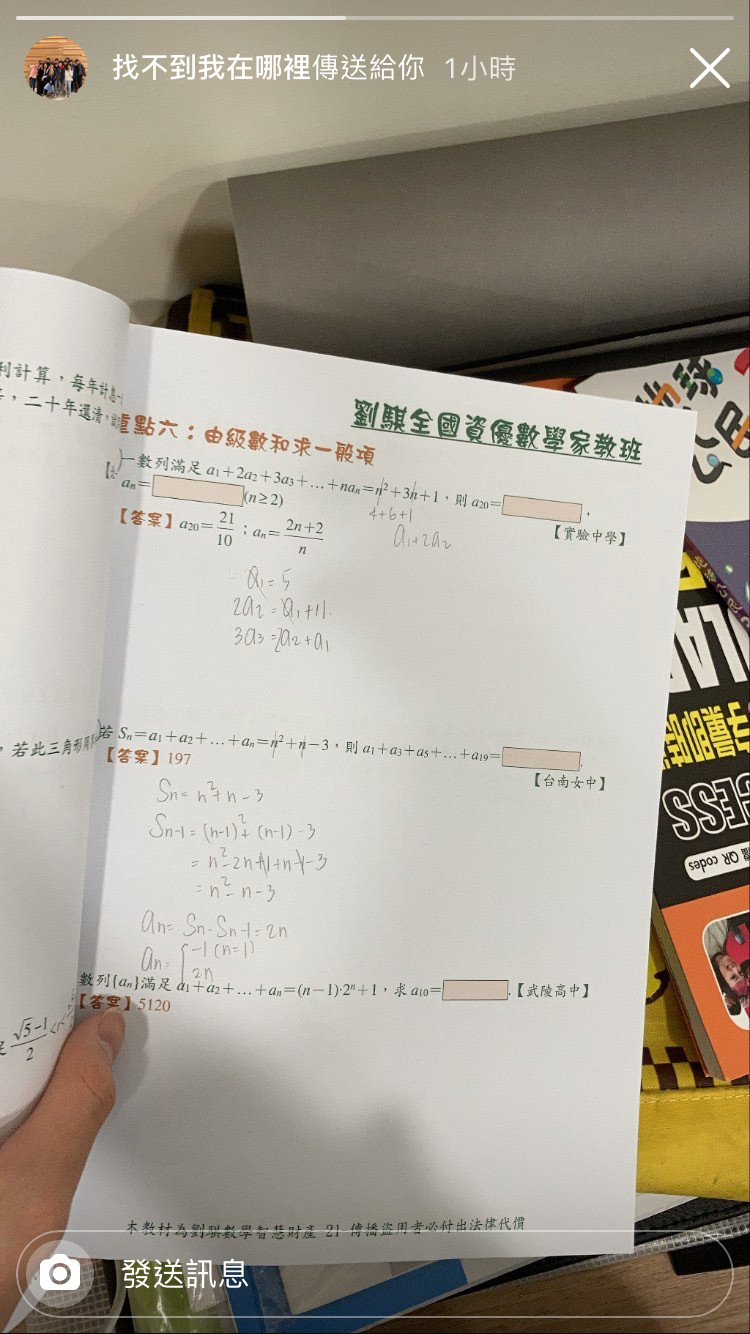 找不到我在哪裡傳送給你 1小時
利計算,每年計息一
,二十年還清,
劉騏全國資優數學家教班
重點六:由級數和求一般項
一數列滿足 a₁+2a₂+3a₃+…+naₙ=n²+3n+1,則 a₂₀= ,
aₙ= (n≥2)
【實驗中學】
4+6+1
【答案】a₂₀=21/10;aₙ=(2n+2)/n
a₁+2a₂
a₁=5
2a₂=a₁+11
3a₃=2a₂+a₁
,若此三角形
若 Sₙ=a₁+a₂+…+aₙ=n²+n−3,則 a₁+a₃+a₅+…+a₁₉= .
【答案】197
【台南女中】
Sₙ=n²+n-3
Sₙ₋₁=(n-1)²+(n-1)-3
=n²-2n+1+n-1-3
=n²-n-3
aₙ=Sₙ-Sₙ₋₁=2n
aₙ={-1 (n=1)
2n
數列{aₙ}滿足 a₁+a₂+…+aₙ=(n−1)·2ⁿ+1,求 a₁₀= .【武陵高中】
【答案】5120
(√5−1)/2
QR codes
本教材為劉騏數學智慧財產 21 傳播盜用者必付出法律代價
發送訊息